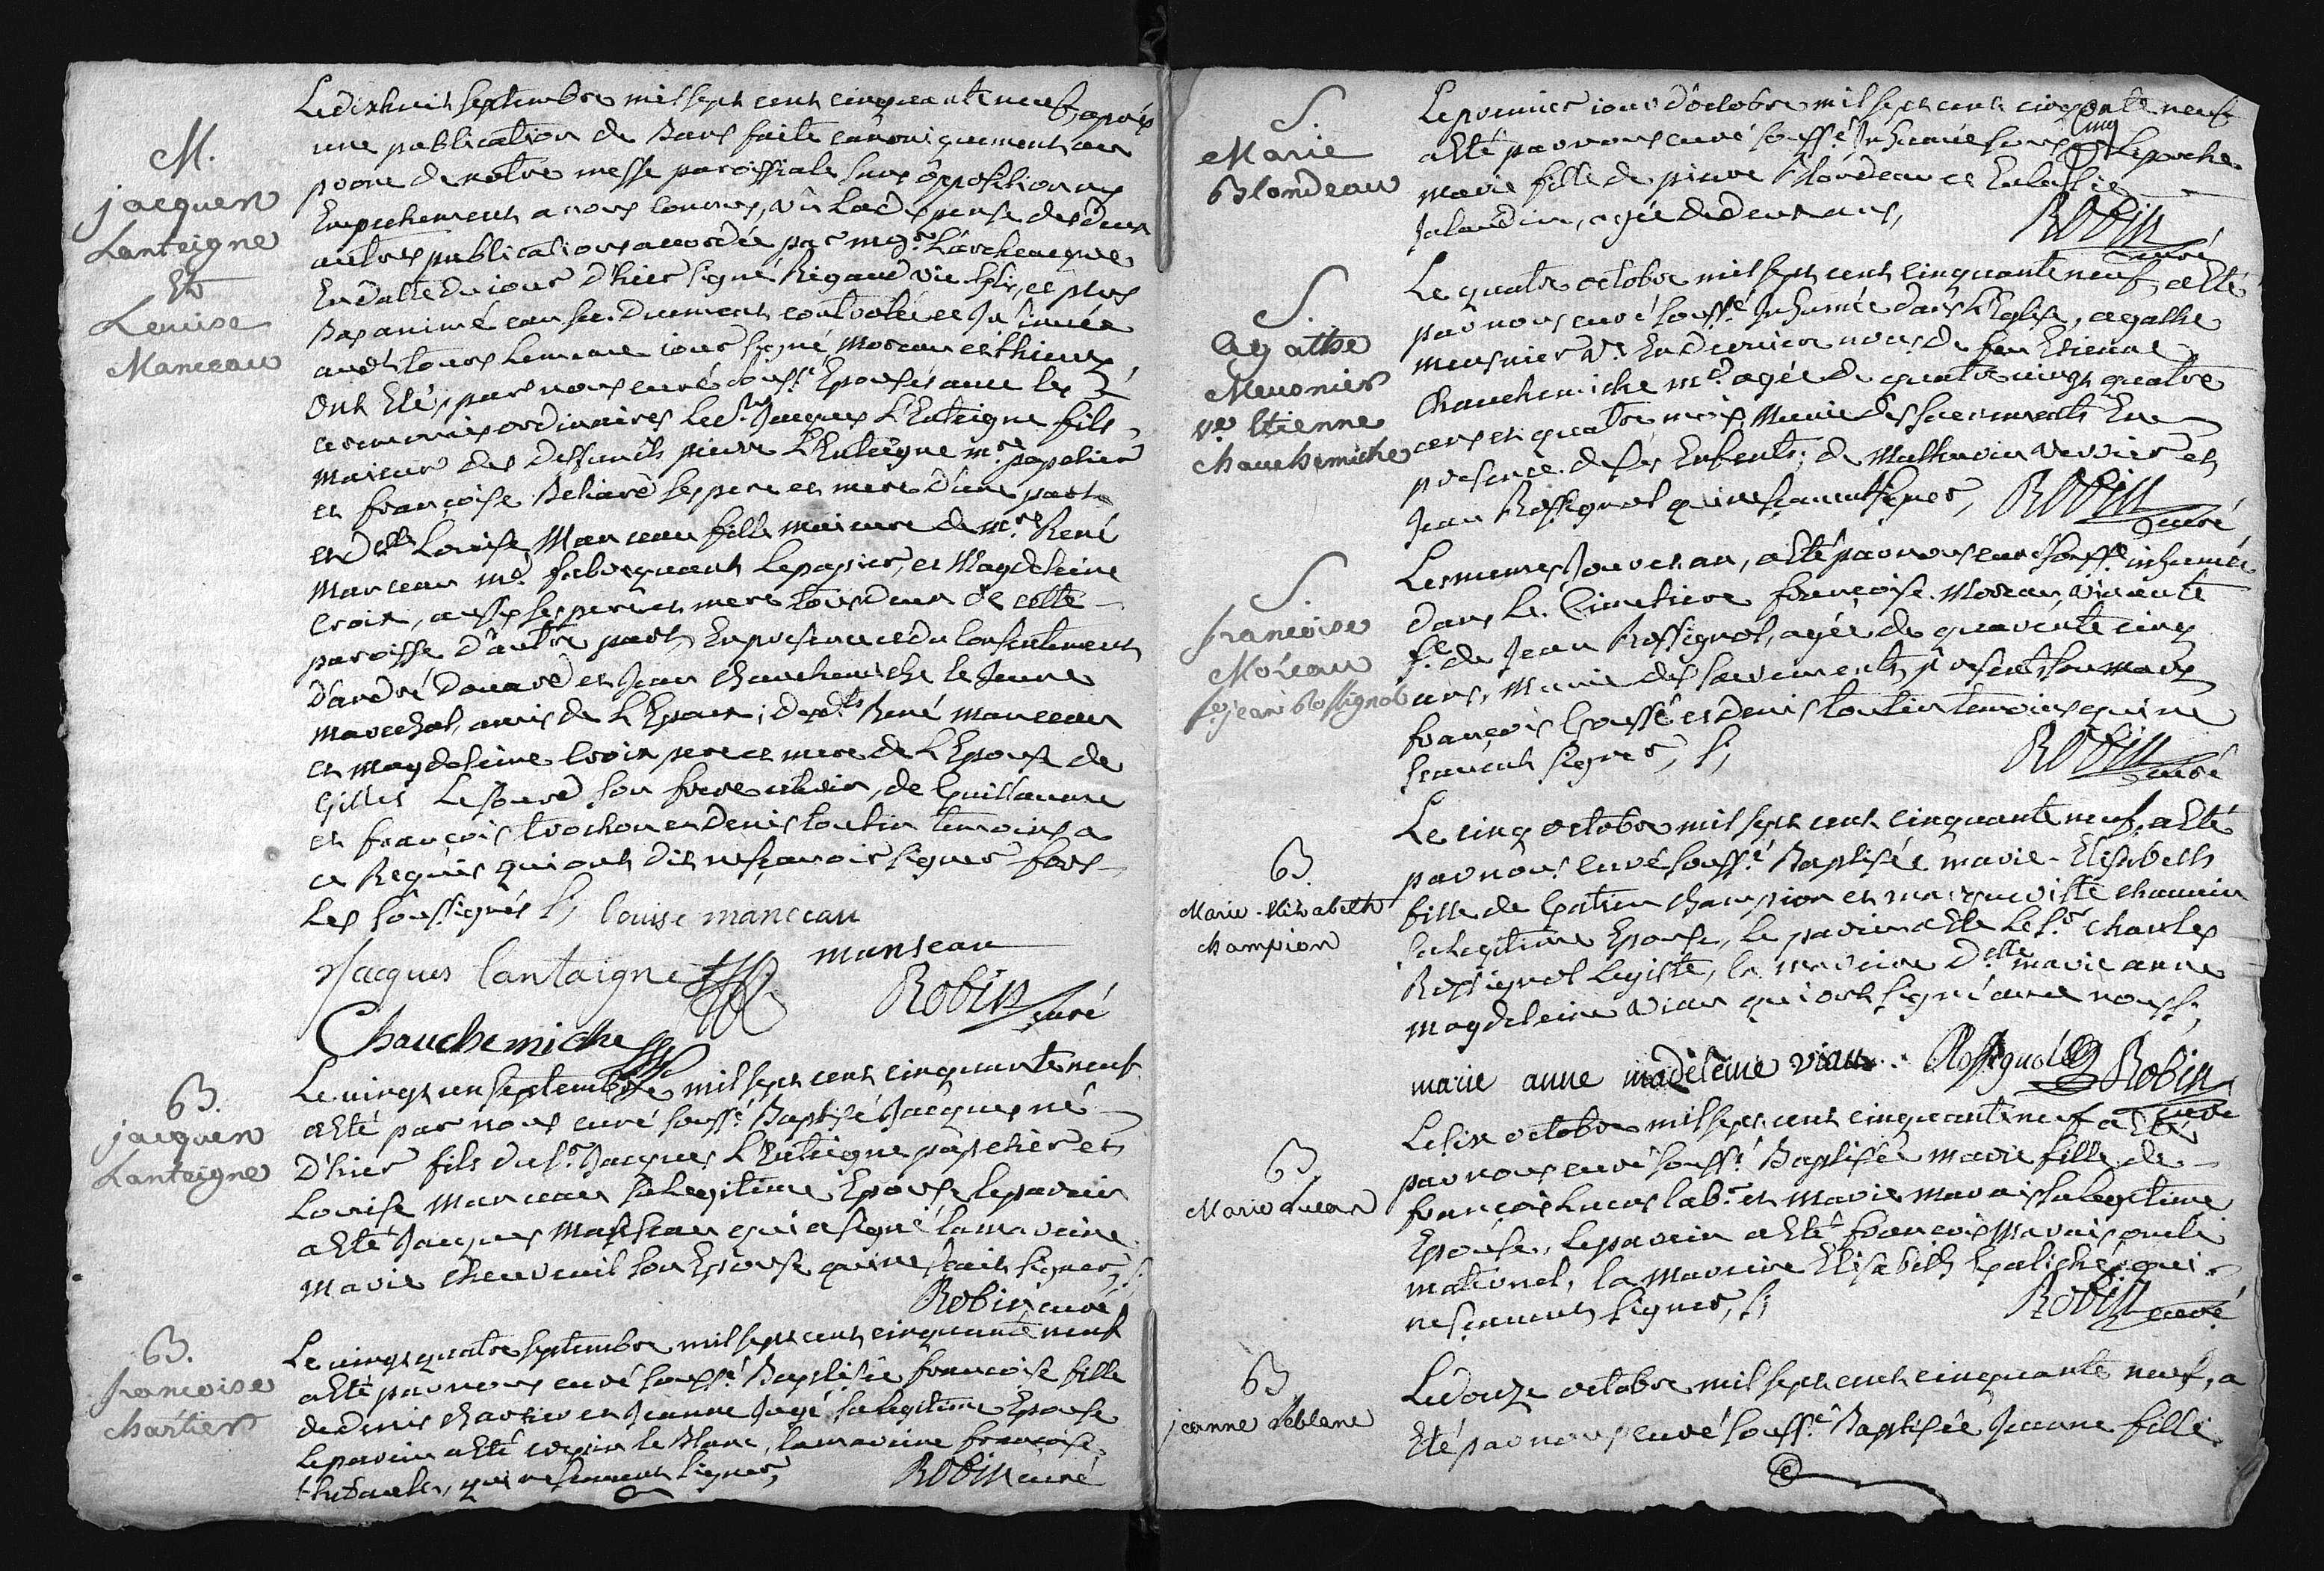 M.
jacques
Lanteigne
Et
Lenuise
Manceau
Ledixhuit septembre mil sept cent cinquante neuf, après
une publication de Bans faite canoniquement au
prone de notre messe paroissiale sans opposition ny
Empechement a nous connus, vû La dispense des deux
autres publications accordée par mgr. L'archevêque
En datte du jour d'hier signé Rigaud vic. et plus
bas animé dument controlée et Insinuée
audt tours le meme jour signé moreau et
Ont Eté par nous curé soussé Epousés avec les
ceremonies ordinaires le Sr. Jacques L'Enteigne fils
majeur des deffuncts pierre L'Enteigne me. papetier
et françoise Beliard ses pere et mere d'une part
et delle Louise Manceau fille majeure de mre René
Manceau md. fabriquant le papier, et Magdeleine
Croix, aussy ses pere et mere tous deux de cette
paroisse d'autre part, En presence et du consentement
d'andré Douard et Jean Chauchemiche le Jeune
marechal, amis de L'Epoux; desdts René Manceau
et magdeleine Croix pere et mere de L'Epouse de
Gilles Lesourd son frere uterin, de Guillaume
et françois trochon et denis toutin temoins a
ce Requis qui ont dit ne sçavoir signer fors
Les soussignés %, louise manceau
Jacques lantaigne manseau
Robin curé
Chauchemiche
B.
jacques
Lanteigne
Le vingt un septembre mil sept cent cinquante neuf
a Eté par nous curé soussé Baptisé Jacques né
D'hier fils du Sr. Jacques L'Enteigne papetier et
Louise Manceau sa legitime Epouse le parain
a Eté Jacques Manseau qui a signé la maraine
Marie Cheuvreuil son Epouse qui ne sçait signer, %
Robin curé
B.
francoise
chartier
Le vingt quatre septembre mil sept cent cinquante neuf
a Eté par nous curé soussé Baptisée francoise fille
de denis chartier et Jeanne Jagé sa legitime Epouse
le parain a Eté le Blanc, la maraine francoise
thibault, qui ne sçauent signer,
Robin curé
S.
Marie
Blondeau
Le premier jour d'octobre mil sept cent cinquante neuf
a Eté par nous curé soussé Inhumée sous le porche
marie fille de pierre Blondeau et Eulalie
Jalaudin, agée de deux ans,
Robin
curé
S.
Agathe
Meusnier
ve Etienne
chauchemiche
Le quatre octobre mil sept cent cinquante neuf, a Eté
par nous curé soussé Inhumée dans L'Eglise, agathe
meusnier ve. En derniere nopces de feu Etienne
Chauchemiche md. agée de quatre vingt quatre
ans et quatre mois, Munie des sacrements En
presence de ses Enfents, de Mathurin verrier et
Jean Rossignol qui ne sçauent signer,
Robin
curé
S.
francoise
Moreau
fe. jean Rossignol
Les memes Jour et an, a Eté par nous curé soussé inhumée
dans le Cimetiere francoise Moreau, vivante
fe. de Jean Rossignol, agée de quarente cinq
ans, Munie des sacrements, presents son mary
francois Goussé et denis toutin temoins qui ne
sçavent signer, %
Robin
curé
B.
Marie-Elizabeth
champion
Le cinq octobre mil sept cent cinquante neuf, a Eté
par nous curé soussé Baptisée marie-Elisabeth
fille de Gatien champion et marguerite chauvin
sa legitime Epouse, le parain a Eté le Sr. charles
Rossignol legiste, la maraine Delle marie anne
magdeleine viau qui ont signé avec nous %,
marie anne madeleine viau. Rossignol Robin
curé
B.
Marie Lucas
Le six octobre mil sept cent cinquante neuf a Eté
par nous curé soussé Baptisée marie fille de
françois Lucas labr. et Marie marais sa legitime
Epouse, le parain a Eté francois Marais oncle
maternel, la Maraine Elisabeth Galiché qui
ne sçauent signer, %
Robin
curé
B.
jeanne Leblanc
Le douze octobre mil sept cent cinquante neuf, a
Eté par nous curé soussé Baptisée Jeanne fille